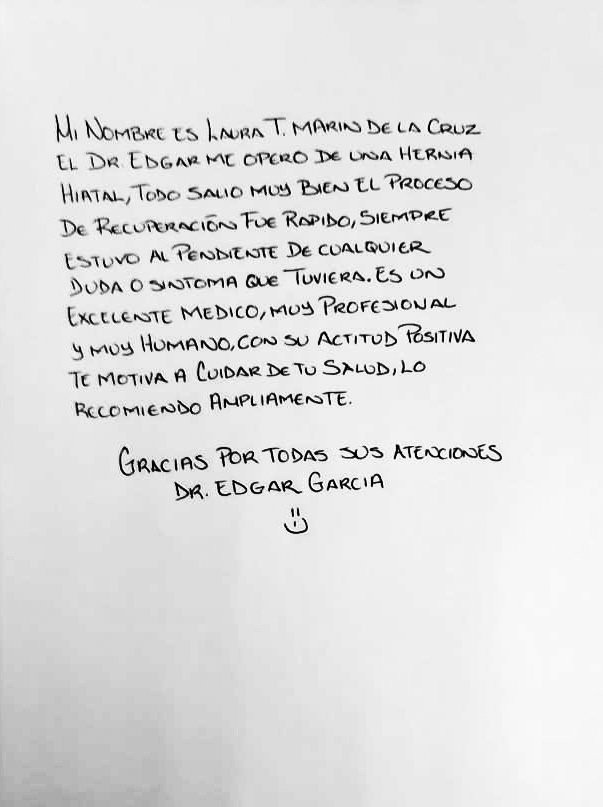 MI NOMBRE ES LAURA T. MARIN DE LA CRUZ
EL DR. EDGAR ME OPERO DE UNA HERNIA
HIATAL, TODO SALIO MUY BIEN EL PROCESO
DE RECUPERACIÓN FUE RAPIDO, SIEMPRE
ESTUVO AL PENDIENTE DE CUALQUIER
DUDA O SINTOMA QUE TUVIERA. ES UN
EXCELENTE MEDICO, MUY PROFESIONAL
Y MUY HUMANO, CON SU ACTITUD POSITIVA
TE MOTIVA A CUIDAR DE TU SALUD, LO
RECOMIENDO AMPLIAMENTE.
GRACIAS POR TODAS SUS ATENCIONES
DR. EDGAR GARCIA